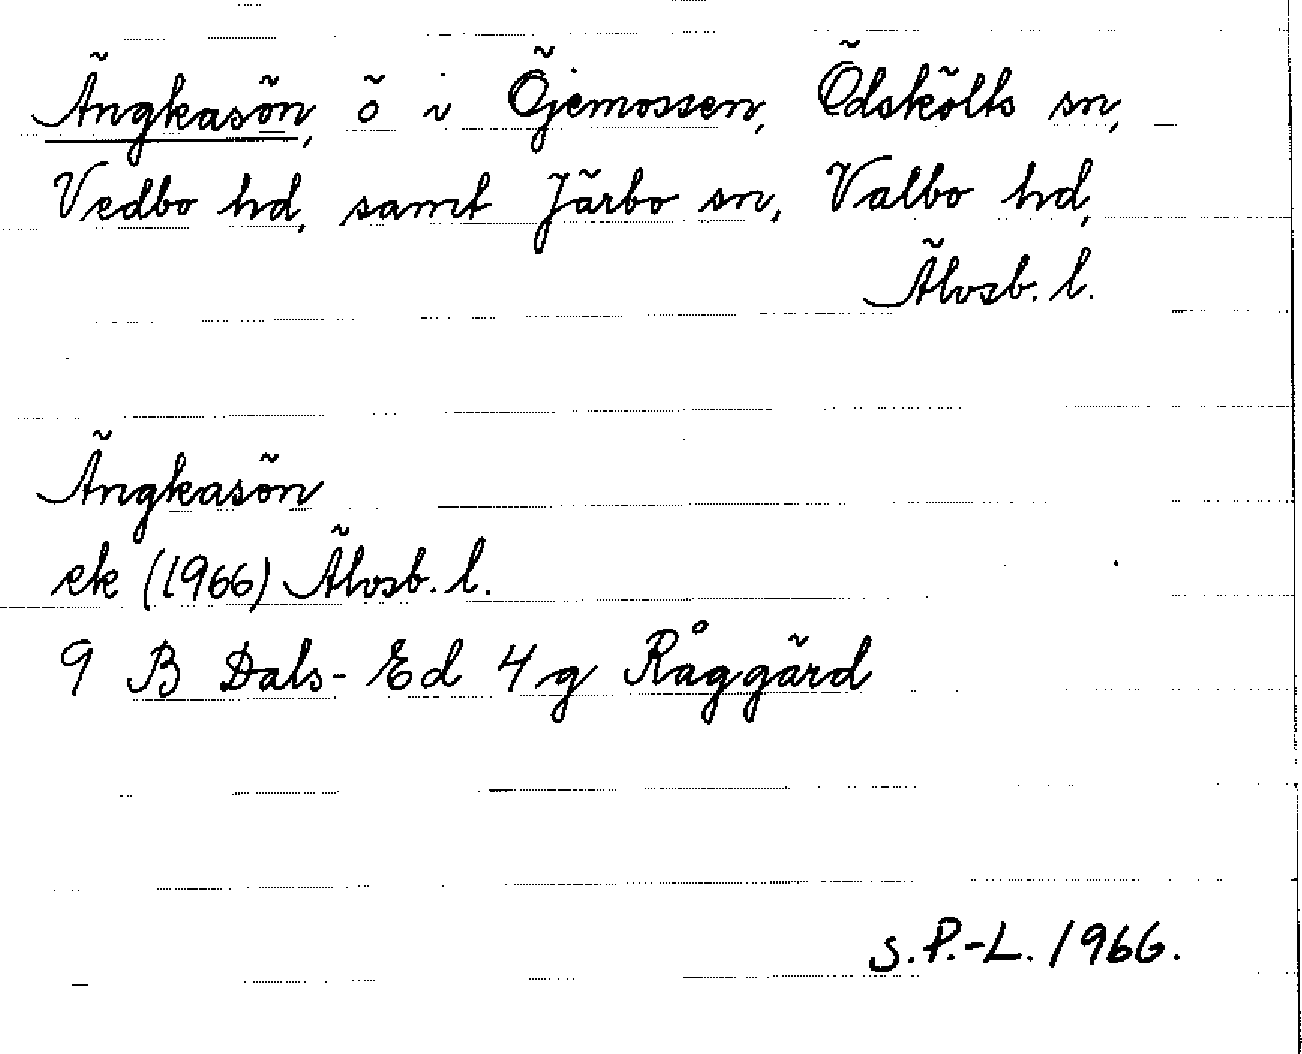 Ängkasön, ö i Öjemossen, Ödskölts sn,
Vedbo hd, samt Järbo sn, Valbo hd,
Älvsb. l.
Ängkasön
ek (1966) Älvsb. l.
9 B Dals-Ed 4g Råggärd
S.P.-L. 1966.